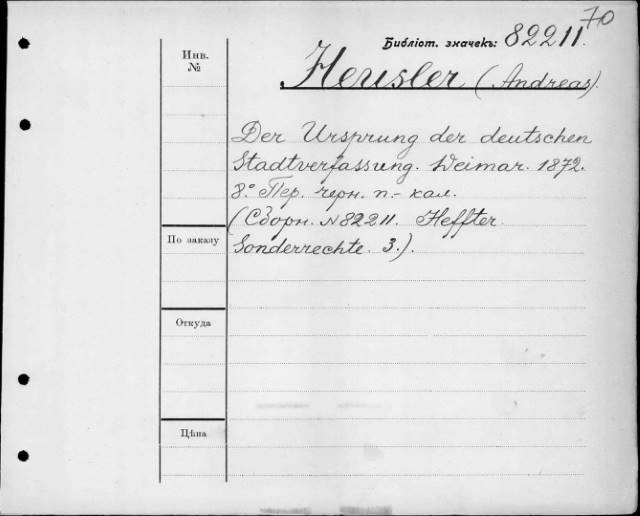 70
Библіот. значекъ: 82211.
Инв.
№
Heusler (Andreas).
Der Ursprung der deutschen
Stadtverfassung. Weimar. 1872.
8º Пер. черн. п.- кал.
(Сборн. №82211. Heffter.
По заказу
Sonderrechte. 3.).
Откуда
Цѣна